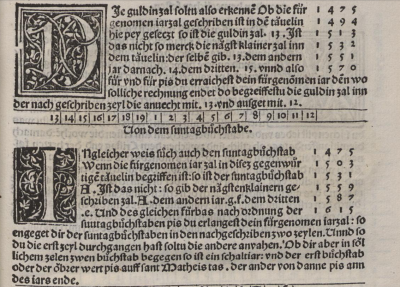 DJe guldin zal soltu also erkennē Ob die für 1 4 7 5
genomen iarzal geschriben ist in dē täuelin 1 4 9 4
hie pey gesetzt so ist die guldin zal. 13. Jst 1 5 1 3
das nicht so merck die nägst klainer zal inn 1 5 3 2
dem täuelin: der selbē gib. 13. dem andern 1 5 5 1
iar darnach. 14. dem dritten. 15. vnnd also 1 5 7 0
für vnd für pis du erraichest dein fürgenomen iar dēn wo
solliche rechnung endet do begreiffestu die guldin zal inn
der nach geschriben zeyl die anuecht mit. 13. vnd ausget mit. 12.
13 14 15 16 17 18 19 1 2 3 4 5 6 7 8 9 10 11 12
Uon dem suntagbůchstabe.
INgleicher weis süch auch den suntagbůchstab 1 4 7 5
Wenn die fürgenomen iar zal in disez gegenwür 1 5 0 3
tigē täuelin begriffen ist: so ist der suntagbůchstab 1 5 3 1
A. Jst das nicht: so gib der nägstenklainern ge⸗ 1 5 5 9
schriben zal. A. dem andern iar. g. f. dem dritten 1 5 8 7
.e. Und des gleichen fürbas nach ordnung der 1 6 1 5
suntagbůchstaben pis du erlangest dein fürgenomen iarzal: so
engeget dir der suntagbůchstaben in den nachgeschriben zwo zeylen. Unnd so
du die erst zeyl durchgangen hast soltu die andere anwahen. Ob dir aber in söl
lichem zelen zwen bůchstab begegen so ist ein schaltiar: vnd der erst bůchstab
oder der öbrer wert pis auff sant Matheis tas. der ander von danne pis ann
des iars ende.